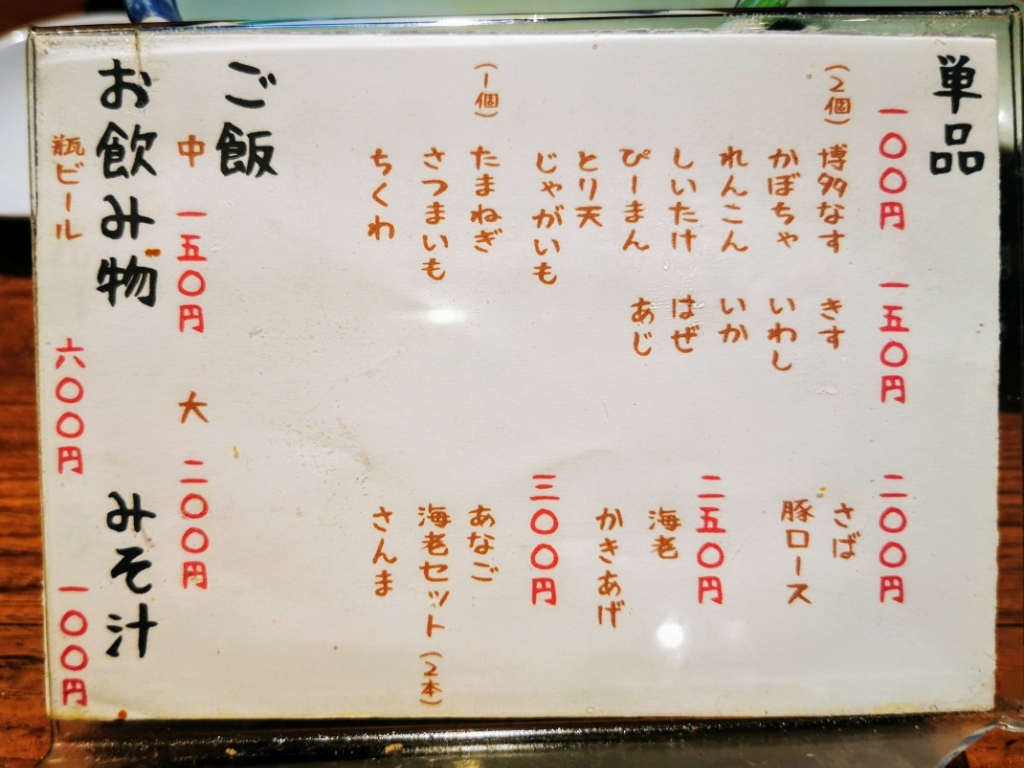 単品
一〇〇円
(2個)
博多なす
かぼちゃ
れんこん
しいたけ
ぴーまん
とり天
じゃがいも
(1個)
たまねぎ
さつまいも
ちくわ
一五〇円
きす
いわし
いか
はぜ
あじ
二〇〇円
さば
豚ロース
二五〇円
海老
かきあげ
三〇〇円
あなご
海老セット(2本)
さんま
ご飯
中 一五〇円 大 二〇〇円
お飲み物
瓶ビール 六〇〇円
みそ汁
一〇〇円